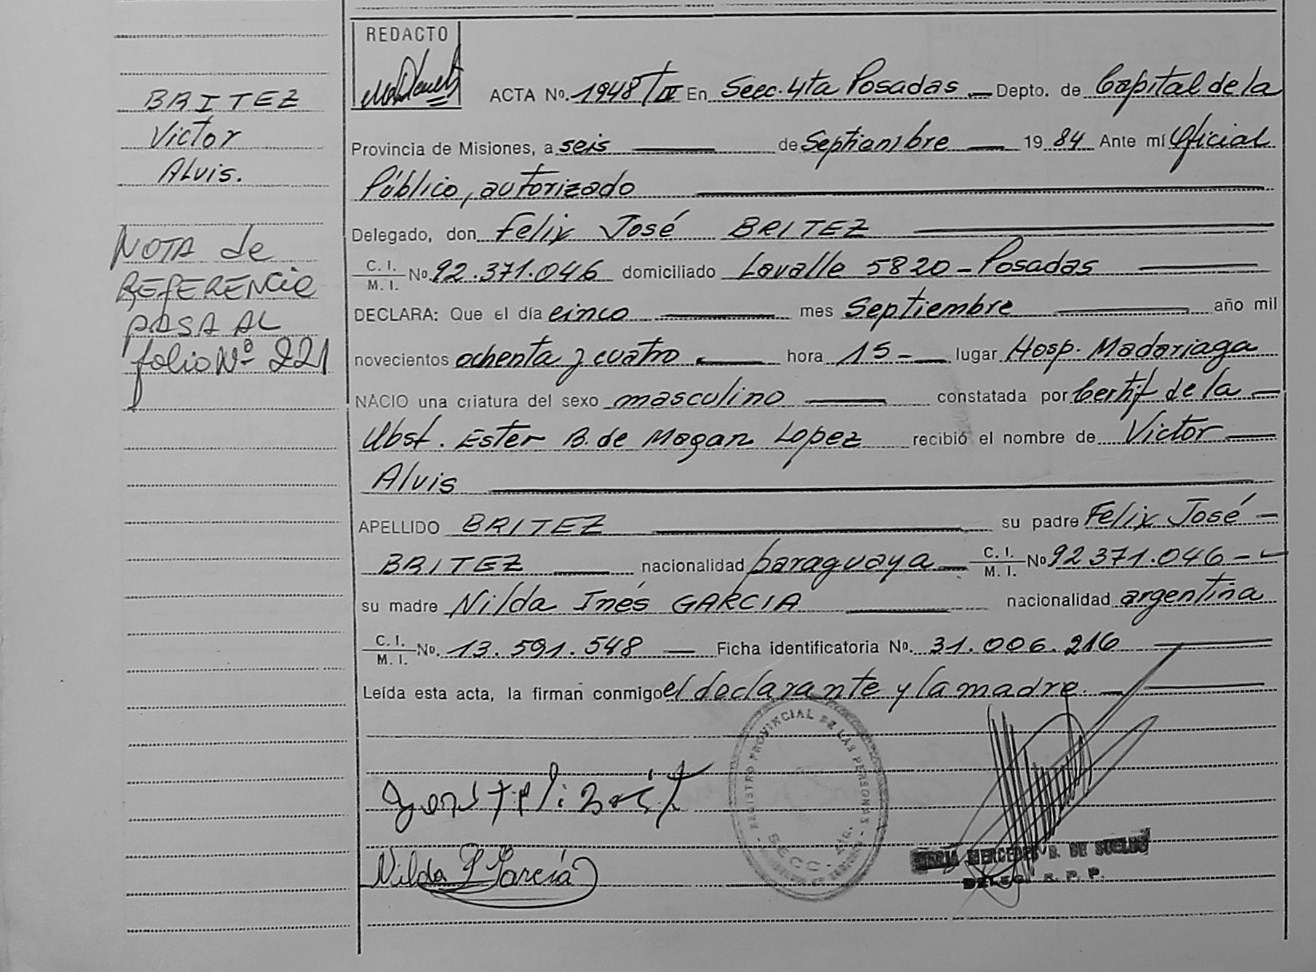 BRITEZ
Victor
Alvis.
NOTA de
REFERENCIA
PASA AL
folio Nº 221
REDACTO
ACTA No. 1948/IV En Secc. 4ta Posadas Depto. de Capital de la
Provincia de Misiones, a seis de Septiembre 1984 Ante mí Oficial
Público, autorizado
Delegado, don Felix José BRITEZ
C. I. / M. I. No. 92.371.046 domiciliado Lavalle 5820 - Posadas
DECLARA: Que el día cinco mes Septiembre año mil
novecientos ochenta y cuatro hora 15 - lugar Hosp. Madariaga
NACIO una criatura del sexo masculino constatada por Certif de la
Obst. Ester B. de Mogan Lopez recibió el nombre de Victor
Alvis
APELLIDO BRITEZ su padre Felix José
BRITEZ nacionalidad paraguaya C. I. / M. I. No 92371.046
su madre Nilda Inés GARCIA nacionalidad argentina
C. I. / M. I. No. 13.591.548 Ficha identificatoria No. 31.006.216
Leída esta acta, la firman conmigo el declarante y la madre
REGISTRO PROVINCIAL DE LAS PERSONAS
SECC. 4ta.
Nilda I García
MERCEDES DE
DELEG. R. P. P.